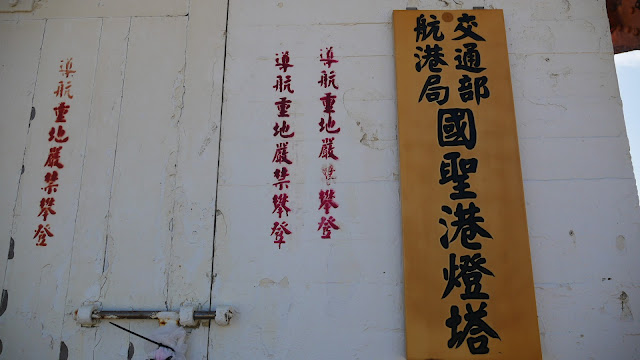 交通部
航港局
國聖港燈塔
導航重地嚴禁攀登
導航重地嚴禁攀登
導航重地嚴禁攀登